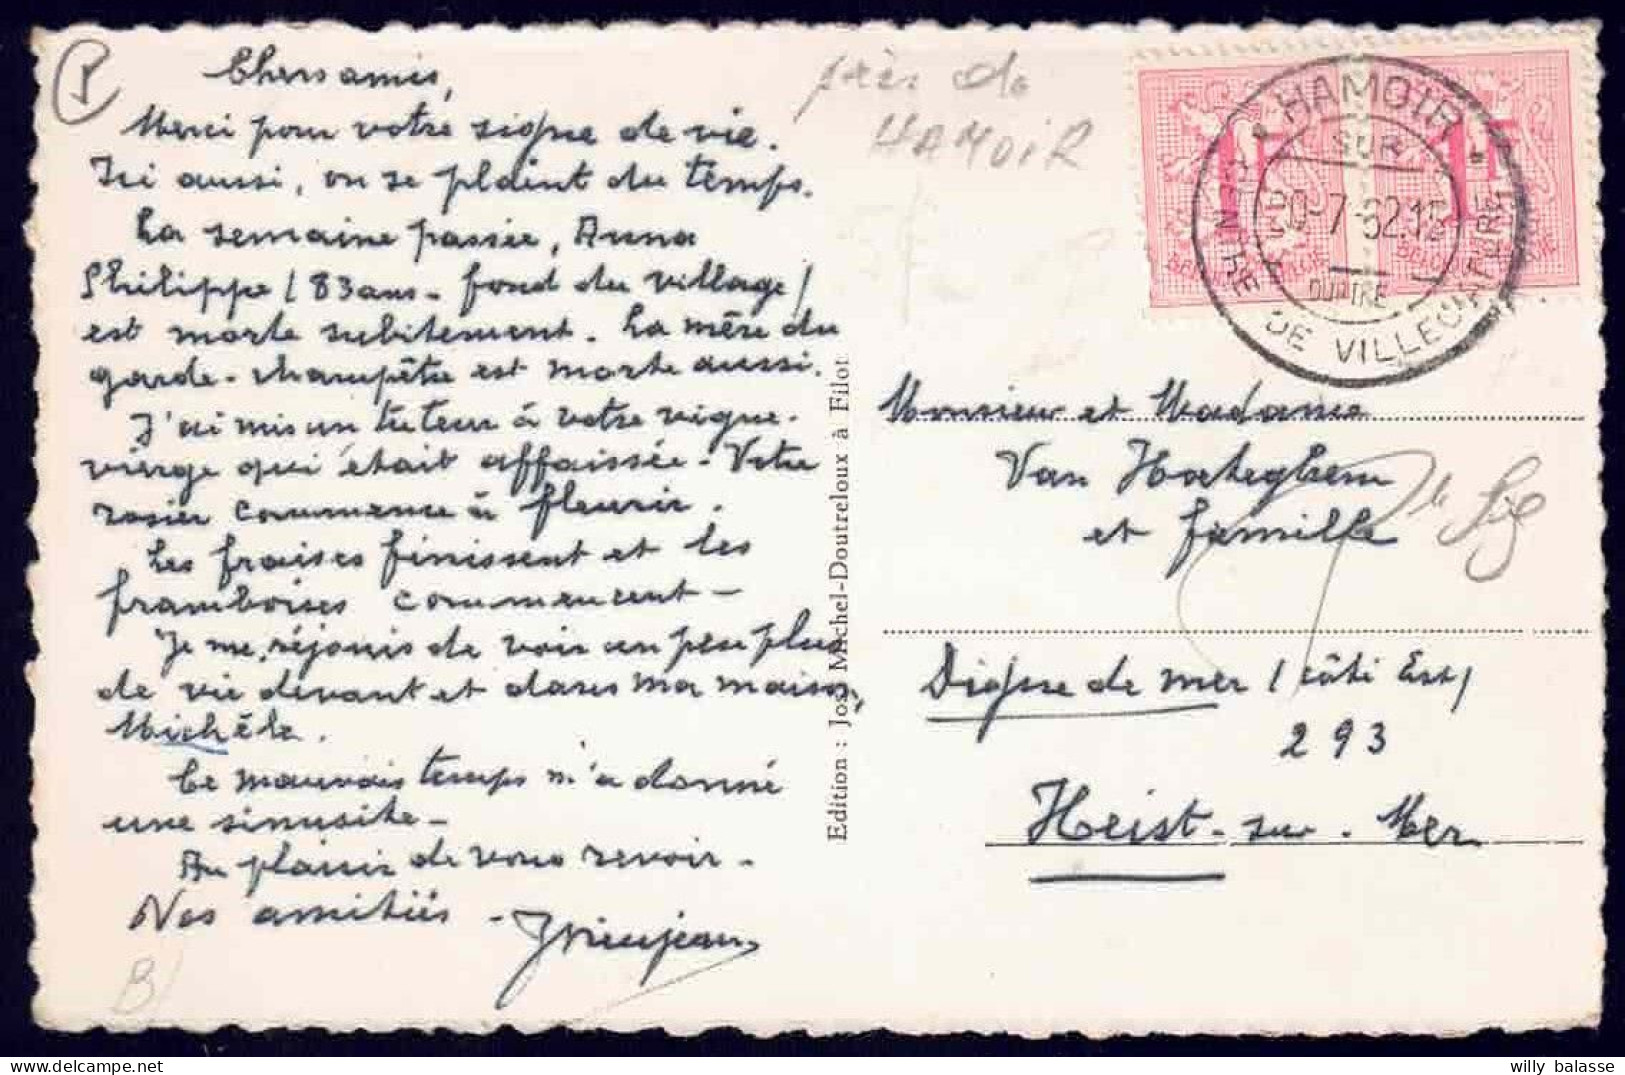 Chers amis,
Merci pour votre signe de vie.
Ici aussi, on se plaint du temps.
La semaine passée, Anna
Philippe (83 ans - fond du village)
est morte subitement. La mère du
garde-champêtre est morte aussi.
J'ai mis un tuteur à votre vigne-
vierge qui était affaissée - Votre
rosier commence à fleurir.
Les fraises finissent et les
framboises commencent -
Je me réjouis de voir un peu plus
de vie devant et dans ma maison,
Michèle.
Le mauvais temps m'a donné
une sinusite -
Au plaisir de vous revoir -
Nos amitiés -
B/
près de
HAMOIR
Edition : Jos. Michel-Doutreloux à Filot
HAMOIR
SUR
OURTHE
DE VILLEGIATURE
1F 1F
Monsieur et Madame
Van
et famille
Digue de mer (côté Est)
293
Heist-sur-Mer
willy balasse